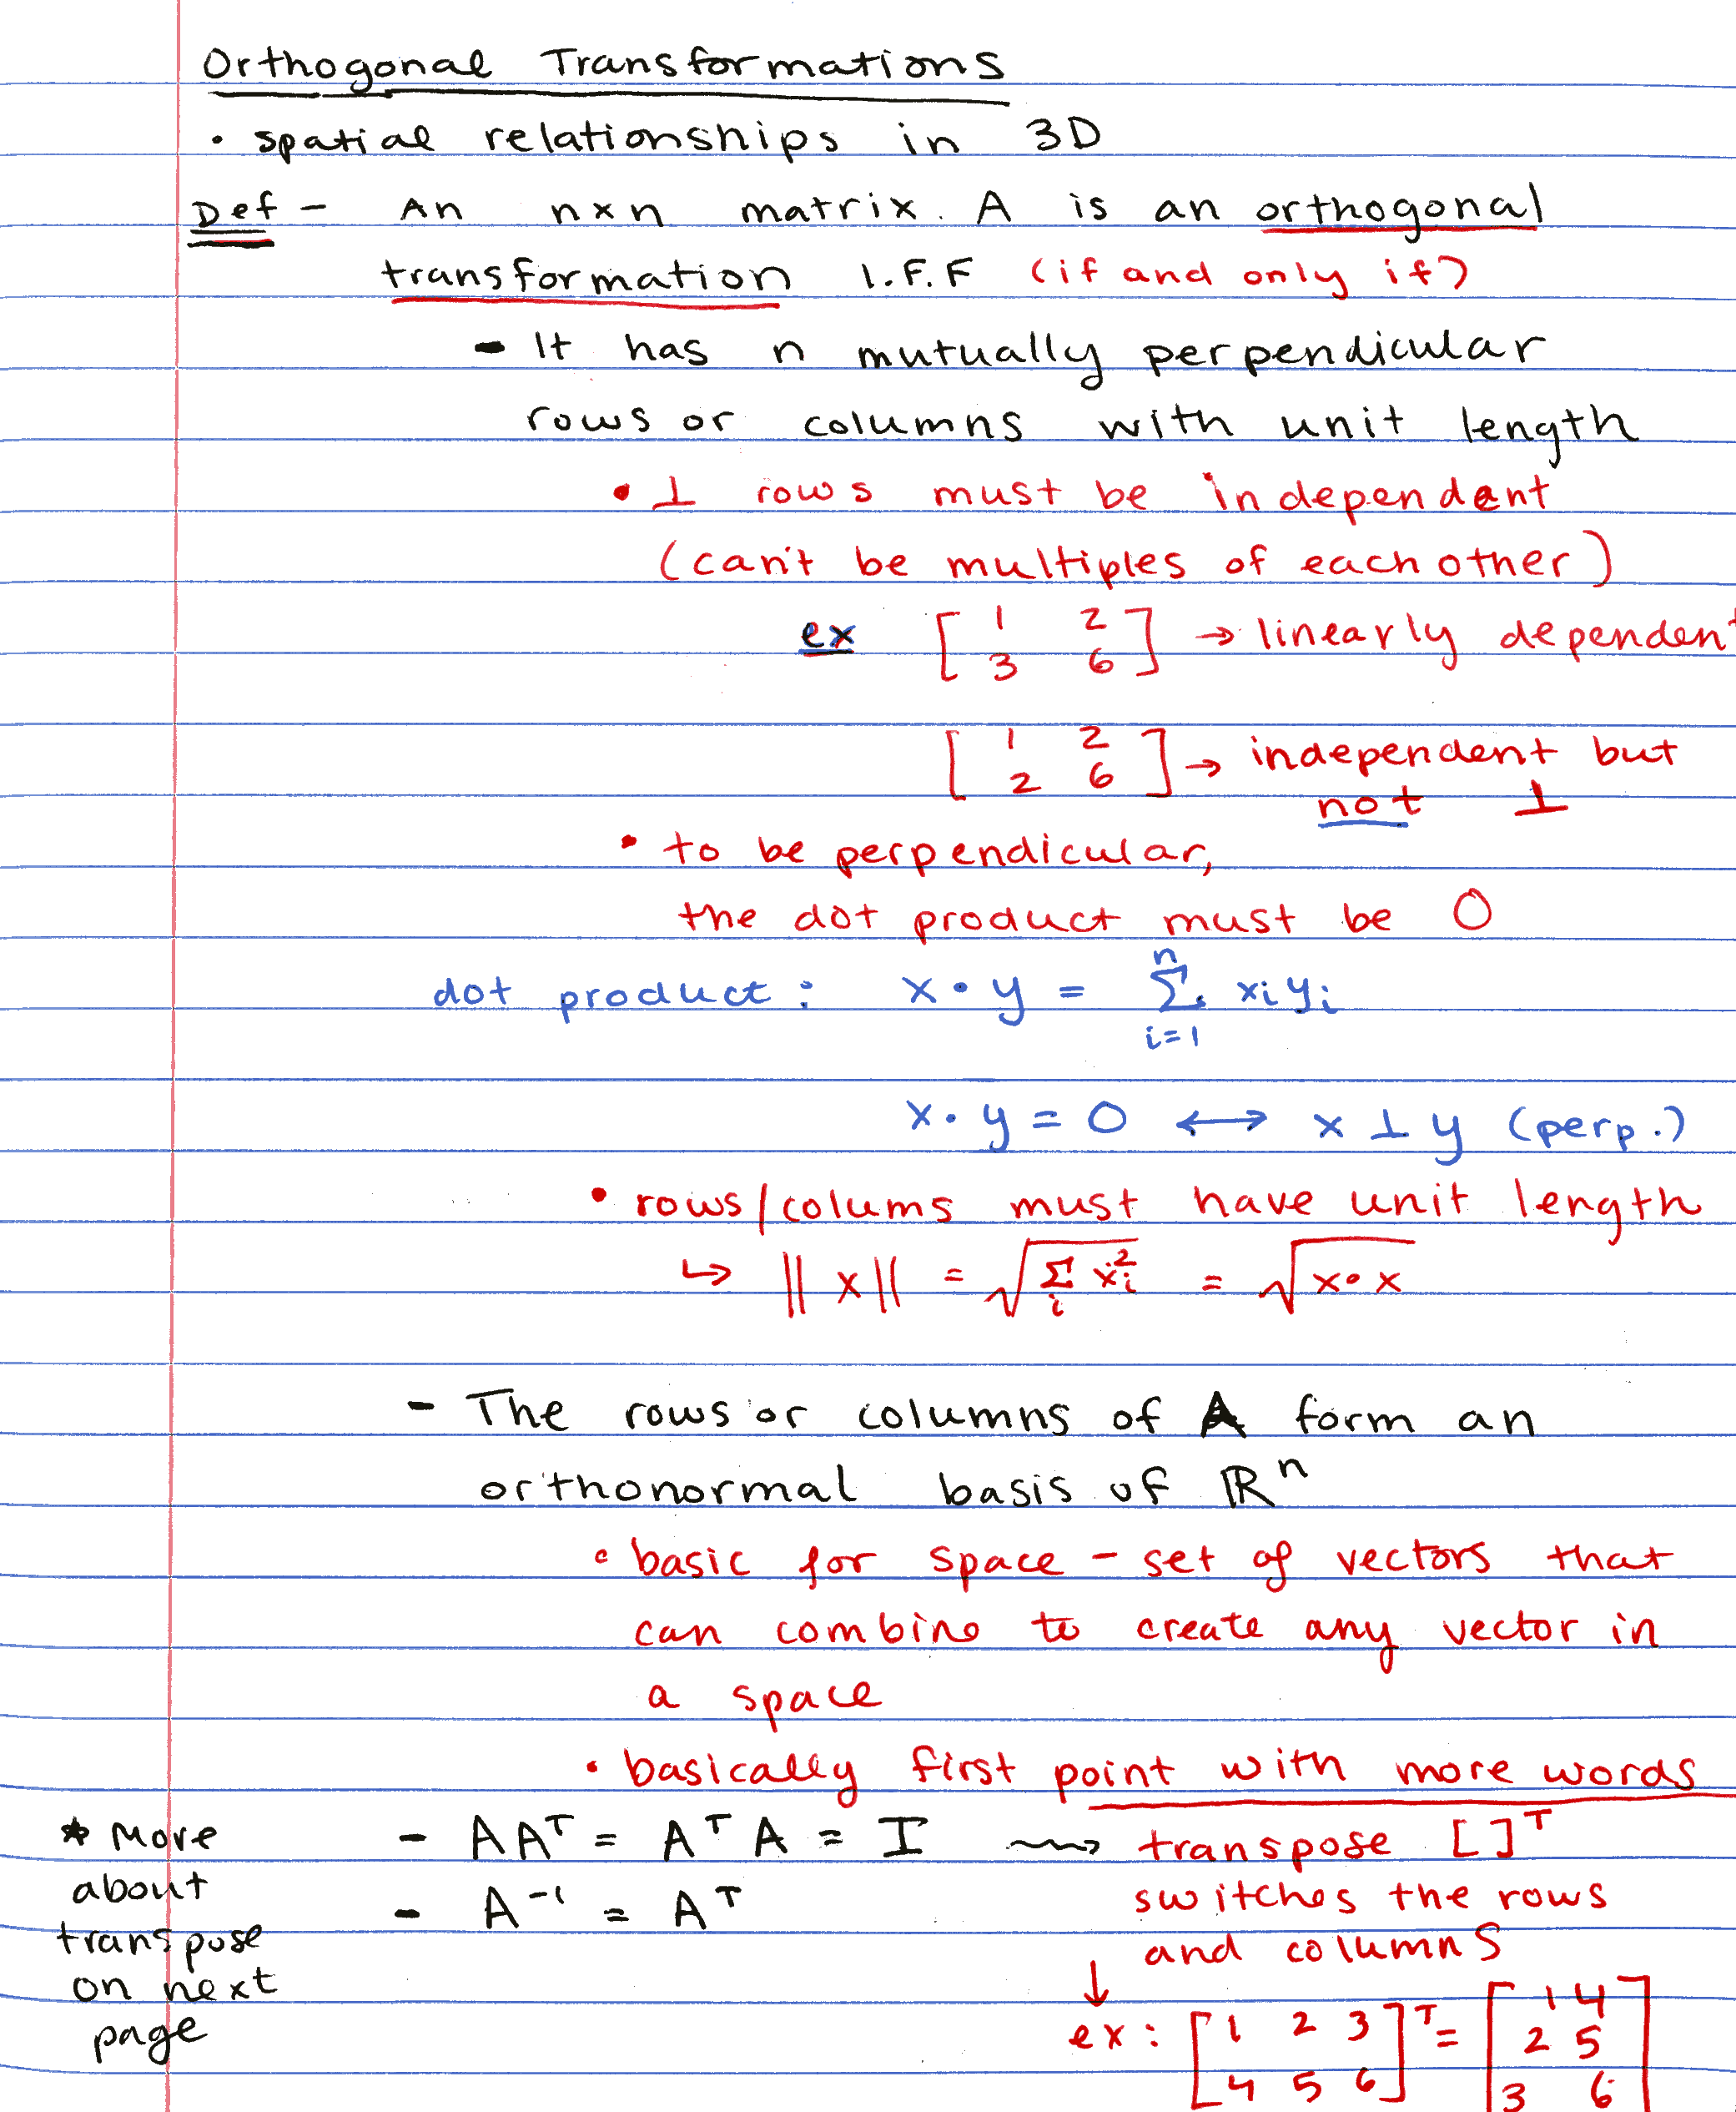 Orthogonal Transformations
• spatial relationships in 3D
Def - An n×n matrix. A is an orthogonal
transformation I.F.F (if and only if)
- It has n mutually perpendicular
rows or columns with unit length
• ⊥ rows must be independent
(can't be multiples of each other)
ex [ 1 2 → linearly dependent
3 6 ]
[ 1 2 → independent but
2 6 ] not ⊥
• to be perpendicular,
the dot product must be 0
dot product: x • y = n∑i=1 xi yi
x • y = 0 ↔ x ⊥ y (perp.)
• rows/colums must have unit length
↳ ||x|| = √∑i xi² = √x•x
- The rows or columns of A form an
orthonormal basis of ℝⁿ
• basic for space - set of vectors that
can combine to create any vector in
a space
• basically first point with more words
- AAᵀ = AᵀA = I ⇝ transpose [ ]ᵀ
switches the rows
and columns
- A⁻¹ = Aᵀ
↓
ex: [ 1 2 3 ]ᵀ = [ 1 4
4 5 6 2 5
3 6 ]
* More
about
transpose
on next
page